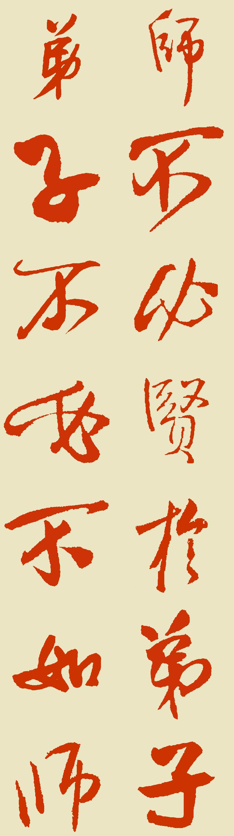 師不必賢於弟子
弟子不必不如师